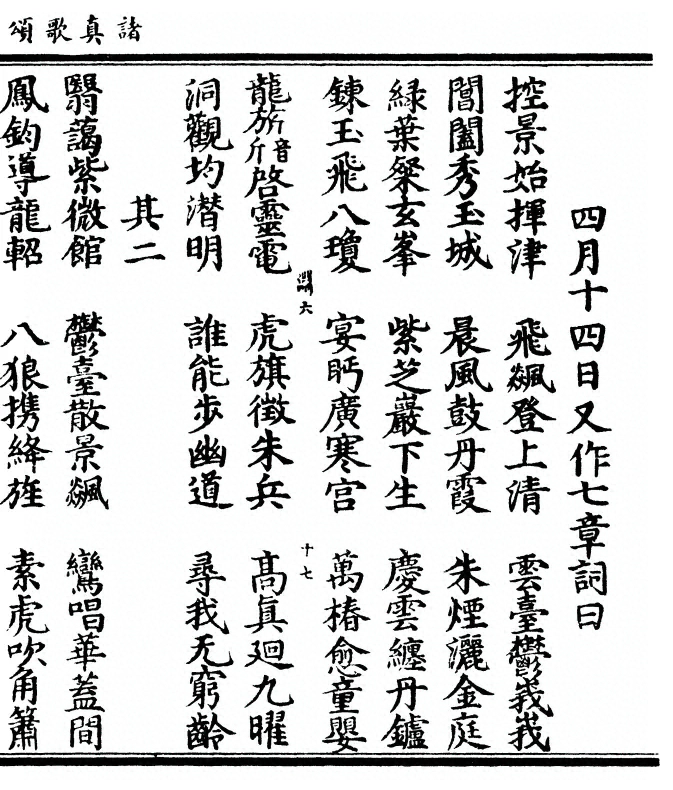 諸真歌頌
四月十四日又作七章詞曰
控景始揮津 飛飆登上清 雲臺鬱峩峩
閶闔秀玉城 晨風鼓丹霞 朱煙灑金庭
綠葉粲玄峯 紫芝巖下生 慶雲纏丹鑪
鍊玉飛八瓊 宴眄廣寒宮 萬椿愈童嬰
淵六 十七
龍旂音斤啓靈電 虎旗徵朱兵 高真廻九曜
洞觀均潛明 誰能步幽道 尋我无窮齡
其二
翳藹紫微館 鬱臺散景飆 鸞唱華蓋間
鳳鈞導龍軺 八狼携絳旌 素虎吹角簫